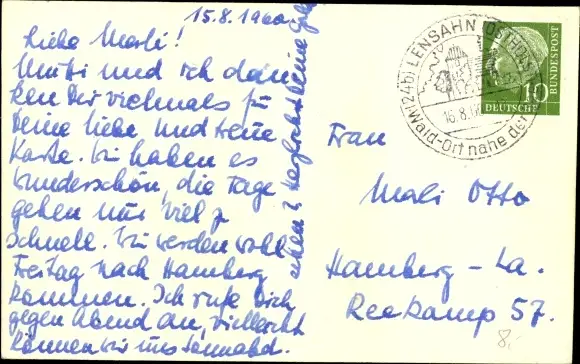 15.8.1960.
Liebe Mali!
Mutti und ich dan-
ken Dir vielmals für
Deine liebe und nette
Karte. Wir haben es
wunderschön, die Tage
gehen nur viel zu
schnell. Wir werden wohl
Freitag nach Hamburg
kommen. Ich rufe Dich
gegen Abend an, vielleicht
können wir uns Sonnabd.
sehen? Herzlichst Deine
Frau
Mali Otto
Hamburg - La.
Reekamp 57.
8,-
(24b) LENSAHN (OSTHOLST
16.8.60
Wald-Ort nahe der
10
DEUTSCHE
BUNDESPOST